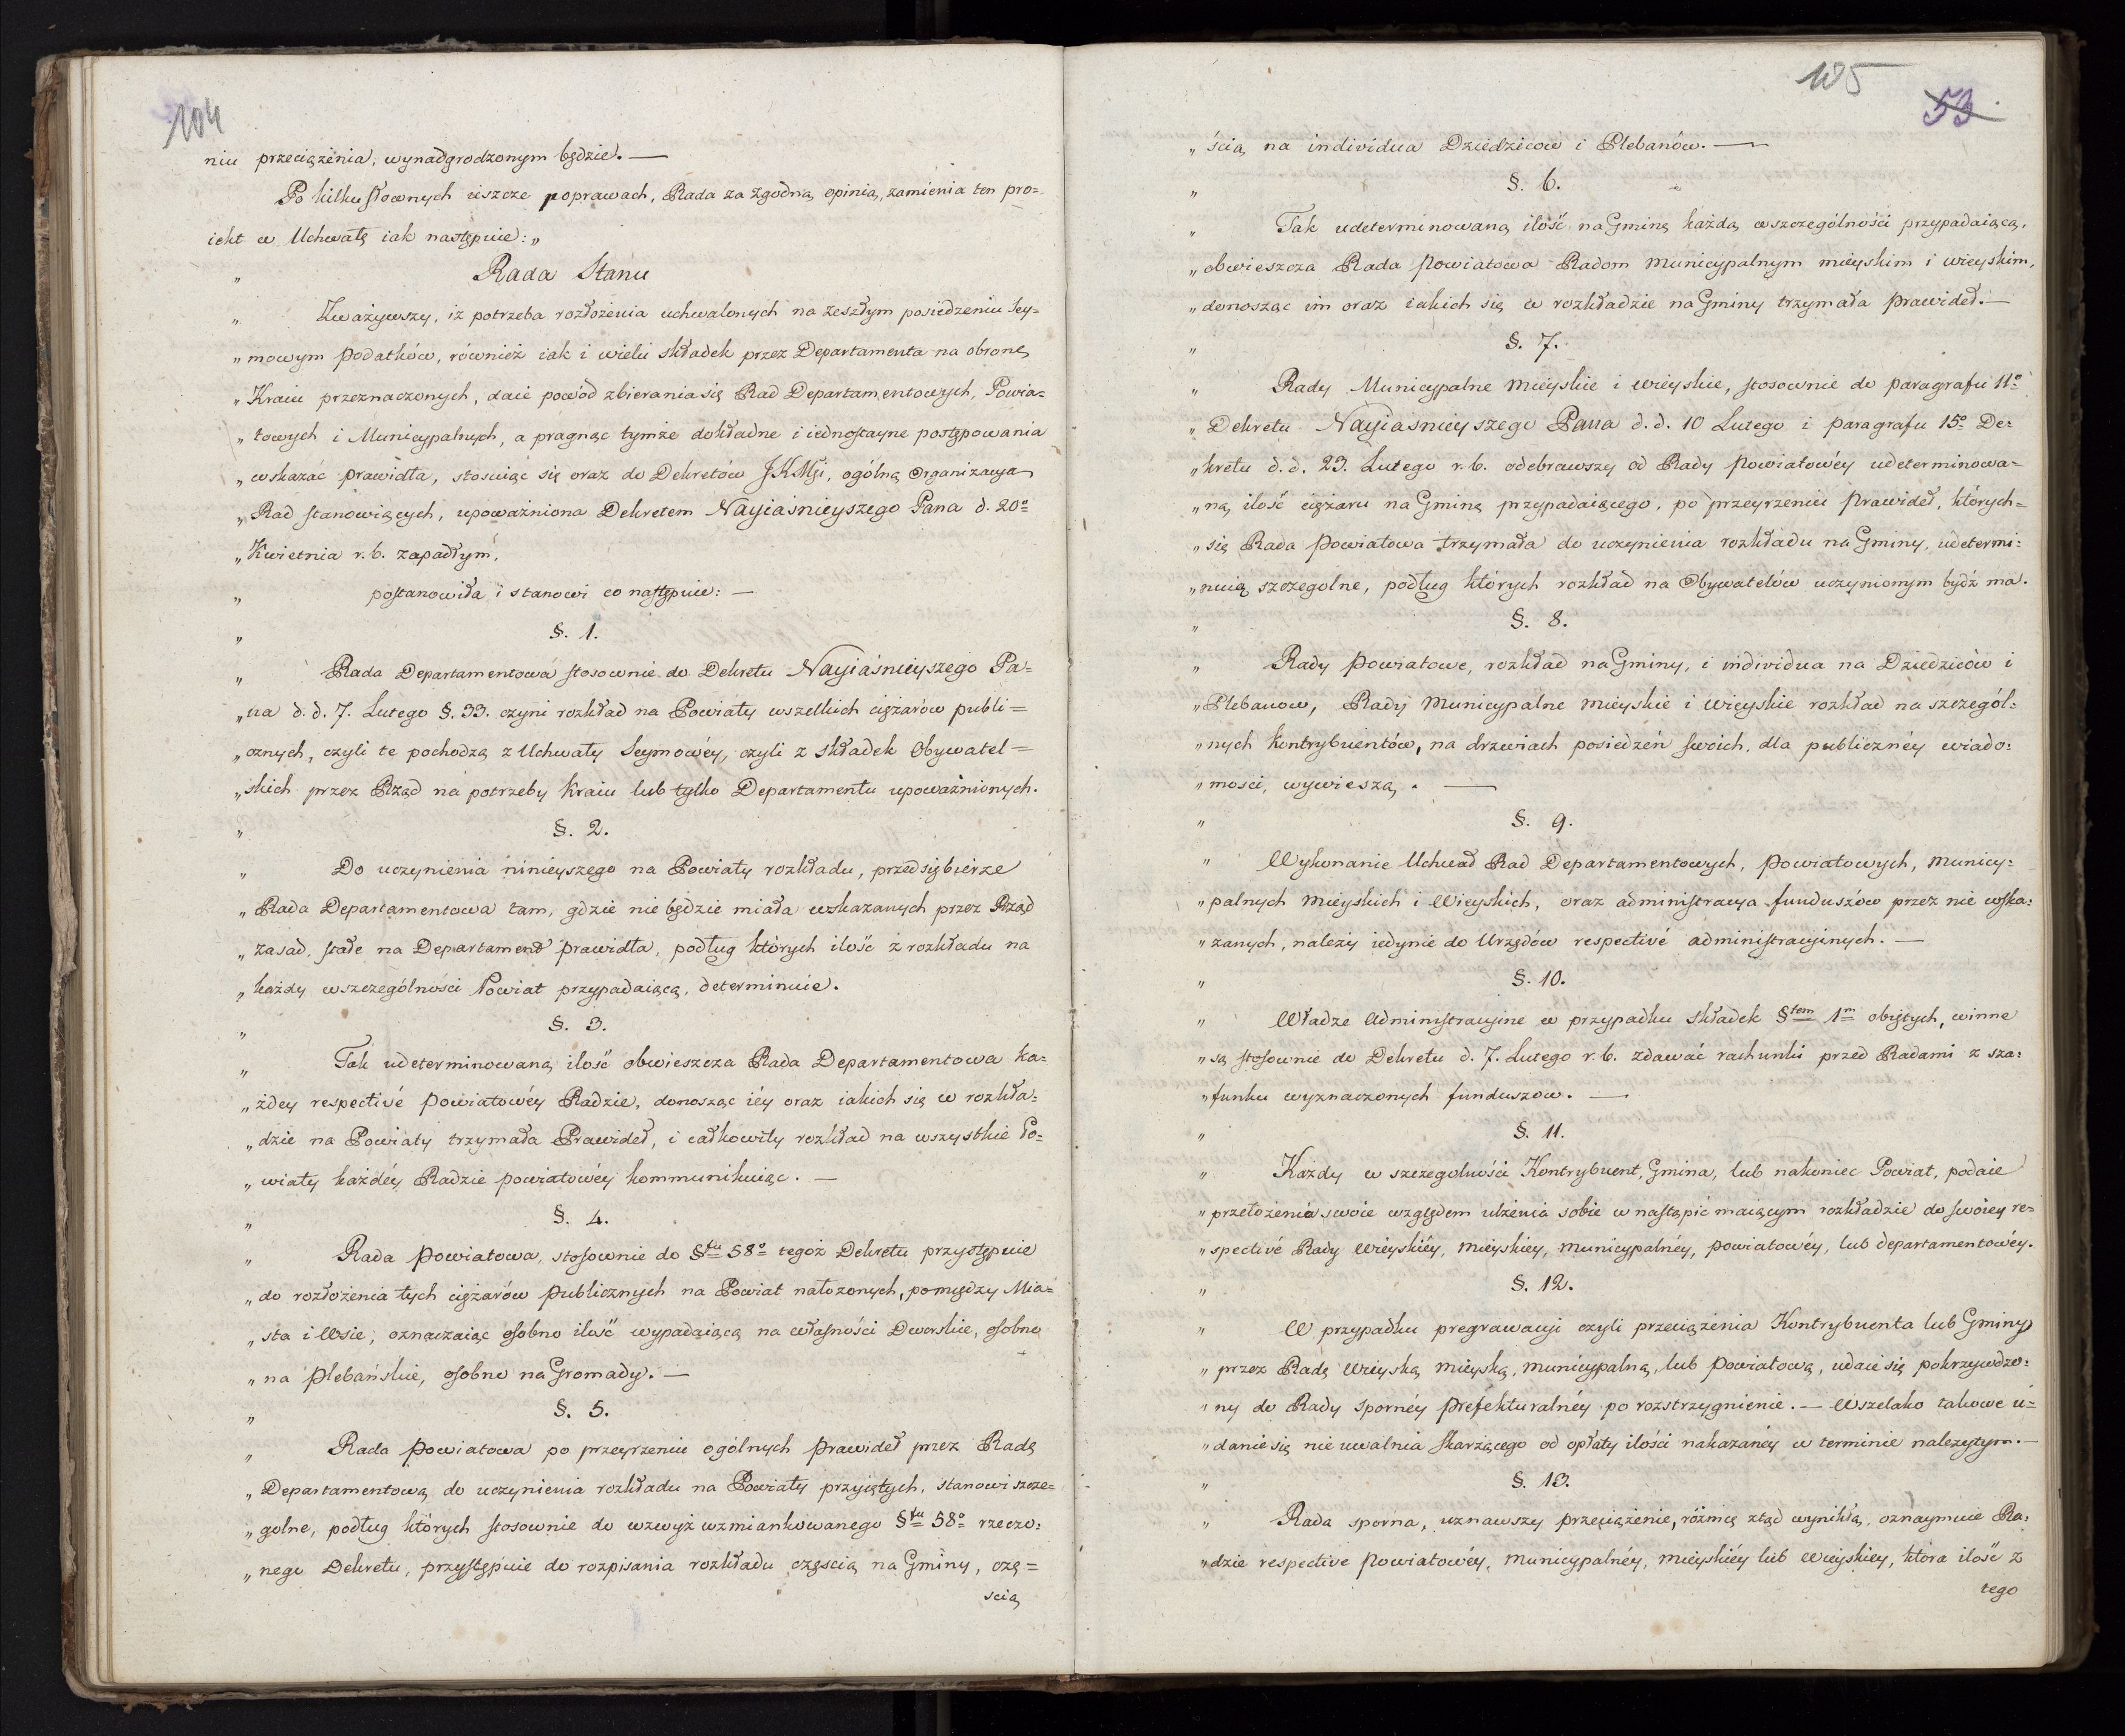 104
niu przeciążenia, wynadgrodzonym będzie. —
Po kilku słownych ieszcze poprawach, Rada za zgodną opinią, zamienia ten pro=
iekt w Uchwałę iak następuie: „
„ Rada Stanu
„ Zważywszy, iż potrzeba rozłożenia uchwalonych na zeszłym posiedzeniu Sey=
„ mowym podatków, również iak i wielu składek przez Departamenta na obronę
„ Kraiu przeznaczonych, daie powód zbierania się Rad Departamentowych, Powia=
„ towych i Municypalnych, a pragnąc tymże dokładne i iednostayne postępowania
„ wskazać prawidła, stosuiąc się oraz do Dekretów JKMci, ogólną Organizacyą
„ Rad stanowiących, upoważniona Dekretem Nayiaśnieyszego Pana d. 20º
„ Kwietnia r. b. zapadłym,
„ postanowiła i stanowi co następuie: —
„ §. 1.
„ Rada Departamentowa stosownie do Dekretu Nayiaśnieyszego Pa=
„ na d. d. 7. Lutego §. 33. czyni rozkład na Powiaty wszelkich ciężarów publi=
„ cznych, czyli te pochodzą z Uchwały Seymowéy, czyli z składek Obywatel=
„ skich przez Rząd na potrzeby kraiu lub tylko Departamentu upoważnionych.
„ §. 2.
„ Do uczynienia ninieyszego na Powiaty rozkładu, przedsiębierze
„ Rada Departamentowa tam, gdzie nie będzie miała wskazanych przez Rząd
„ zasad, stałe na Departament prawidła, podług których ilość z rozkładu na
„ każdy wszczególności Powiat przypadaiącą, determinuie.
„ §. 3.
„ Tak udeterminowaną ilość obwieszcza Rada Departamentowa ka=
„ żdey respectivé powiatowéy Radzie, donosząc iéy oraz iakich się w rozkła=
„ dzie na Powiaty trzymała Prawideł, i całkowity rozkład na wszystkie Po=
„ wiaty każdéy Radzie powiatowéy kommunikuiąc. —
„ §. 4.
„ Rada powiatowa, stosownie do §fu 58º tegoż Dekretu przystępuie
„ do rozłożenia tych ciężarów publicznych na Powiat nałożonych, pomiędzy Mia=
„ sta i Wsie, oznaczaiąc osobno ilość wypadaiącą na własności Dworskie, osobno
„ na plebańskie, osobno na Gromady. —
„ §. 5.
„ Rada powiatowa po przeyrzeniu ogólnych prawideł przez Radę
„ Departamentową do uczynienia rozkładu na Powiaty przyiętych, stanowi szcze=
„ golne, podług których stosownie do wzwyż wzmiankowanego §fu 58º rzeczo=
„ nego Dekretu, przystępuie do rozpisania rozkładu częścią na Gminy, czę=
scią
105
53
„ ścią na individua Dziedziców i Plebanów. —
„ §. 6.
„ Tak udeterminowaną ilość na Gminę każdą wszczególności przypadaiącą,
„ obwieszcza Rada powiatowa Radom Municypalnym mieyskim i wieyskim,
„ donosząc im oraz iakich się w rozkładzie na Gminy trzymała prawideł. —
„ §. 7.
„ Rady Municypalne mieyskie i wieyskie, stosownie do paragrafu 11º
„ Dekretu Nayiaśnieyszego Pana d. d. 10 Lutego i paragrafu 15º De=
„ kretu d. d. 23. Lutego r. b. odebrawszy od Rady powiatowéy udeterminowa=
„ ną ilość ciężaru na Gminę przypadaiącego, po przeyrzeniu prawideł, których=
„ się Rada powiatowa trzymała do uczynienia rozkładu na Gminy, udetermi=
„ nuią szczegolne, podług których rozkład na Obywatelów uczynionym bydź ma.
„ §. 8.
„ Rady powiatowe, rozkład na Gminy, i individua na Dziedziców i
„ Plebanow, Rady Municypalne mieyskie i wieyskie rozkład na szczegól=
„ nych kontrybuentów, na drzwiach posiedzeń swoich, dla publicznéy wiado=
„ mosci, wywieszą. —
„ §. 9.
„ Wykonanie Uchwał Rad Departamentowych, powiatowych, municy=
„ palnych mieyskich i Wieyskich, oraz administracya funduszów przez nie wska=
„ zanych, należy iedynie do Urzędów respectivé administracyinych. —
„ §. 10.
„ Władze Administracyine w przypadku składek §tem 1m obiętych, winne
„ są stosownie do Dekretu d. 7. Lutego r. b. zdawać rachunki przed Radami z sza=
„ funku wyznaczonych funduszów. —
„ §. 11.
„ Każdy w szczegolności Kontrybuent, Gmina, lub nakoniec Powiat, podaie
„ przełożenia swoie względem ulżenia sobie w nastąpić maiącym rozkładzie do swoiey re=
„ spectivé Rady Wieyskiéy, Mieyskiey, municypalnéy, powiatowéy, lub departamentowéy.
„ §. 12.
„ W przypadku pregrawacyi czyli przeciążenia Kontrybuenta lub Gminy
„ przez Radę Wieyską, Mieyską, municypalną, lub powiatową, udaie się pokrzywdzo=
„ ny do Rady spornéy prefekturalnéy po rozstrzygnienie. — Wszelako takowe u=
„ danie się nie uwalnia skarżącego od opłaty ilości nakazanéy w terminie należytym. —
„ §. 13.
„ Rada sporna, uznawszy przeciążenie, różnicę ztąd wynikłą, oznaymuie Ra=
„ dzie respective powiatowéy, municypalnéy, mieyskiéy lub Wieyskiey, ktora ilość z
tego